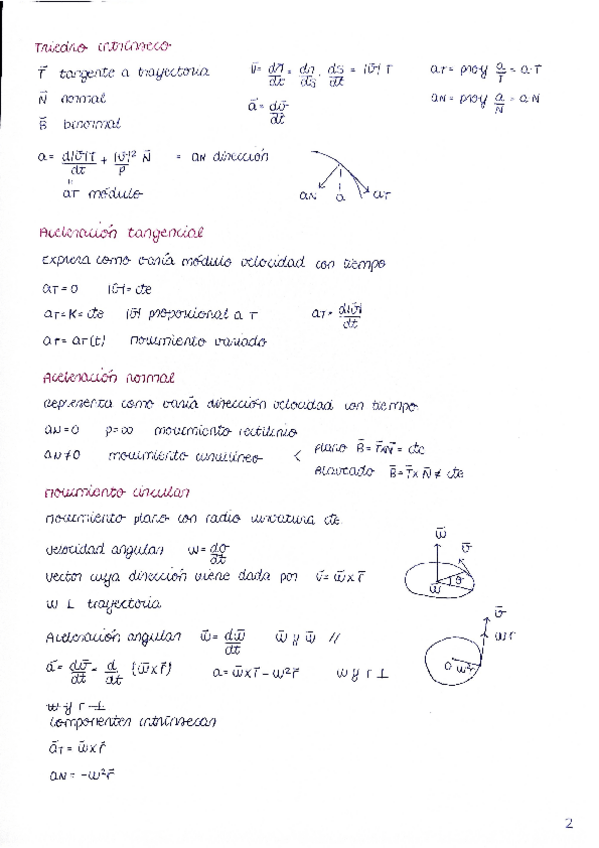 Triedro intrínseco
T⃗ tangente a trayectoria
v̄ = dr̄/dt = dr/ds · ds/dt = |v̄| T
aT = proy a/T = a·T
N⃗ normal
ā = dv̄/dt
aN = proy a/N = a·N
B⃗ binormal
a = d|v̄|T/dt + |v̄|²/ρ N⃗ = aN dirección
"
aT módulo
aN a aT
Aceleración tangencial
Expresa como varía módulo velocidad con tiempo
aT = 0 |v̄| = cte
aT = K = cte |v̄| proporcional a T aT = d|v̄|/dt
aT = aT(t) movimiento variado
Aceleración normal
Representa como varía dirección velocidad con tiempo
aN = 0 ρ = ∞ movimiento rectilíneo
aN ≠ 0 movimiento curvilíneo < plano B̄ = T̄∧N̄ = cte
alaveado B̄ = T̄ x N̄ ≠ cte
Movimiento circular
Movimiento plano con radio curvatura cte
velocidad angular w = dθ/dt
vector cuya dirección viene dada por v̄ = w̄ x r̄
w ⊥ trayectoria
w̄ v̄ θ w
Aceleración angular w̄ = dw̄/dt w̄ y w̄ //
ā = dv̄/dt = d/dt (w̄ x r̄) a = w̄ x r̄ − w²r̄ w y r ⊥
v̄ wr O w²r
w y r ⊥
Componentes intrínsecas
āT = w̄ x r̄
aN = −w²r̄
2